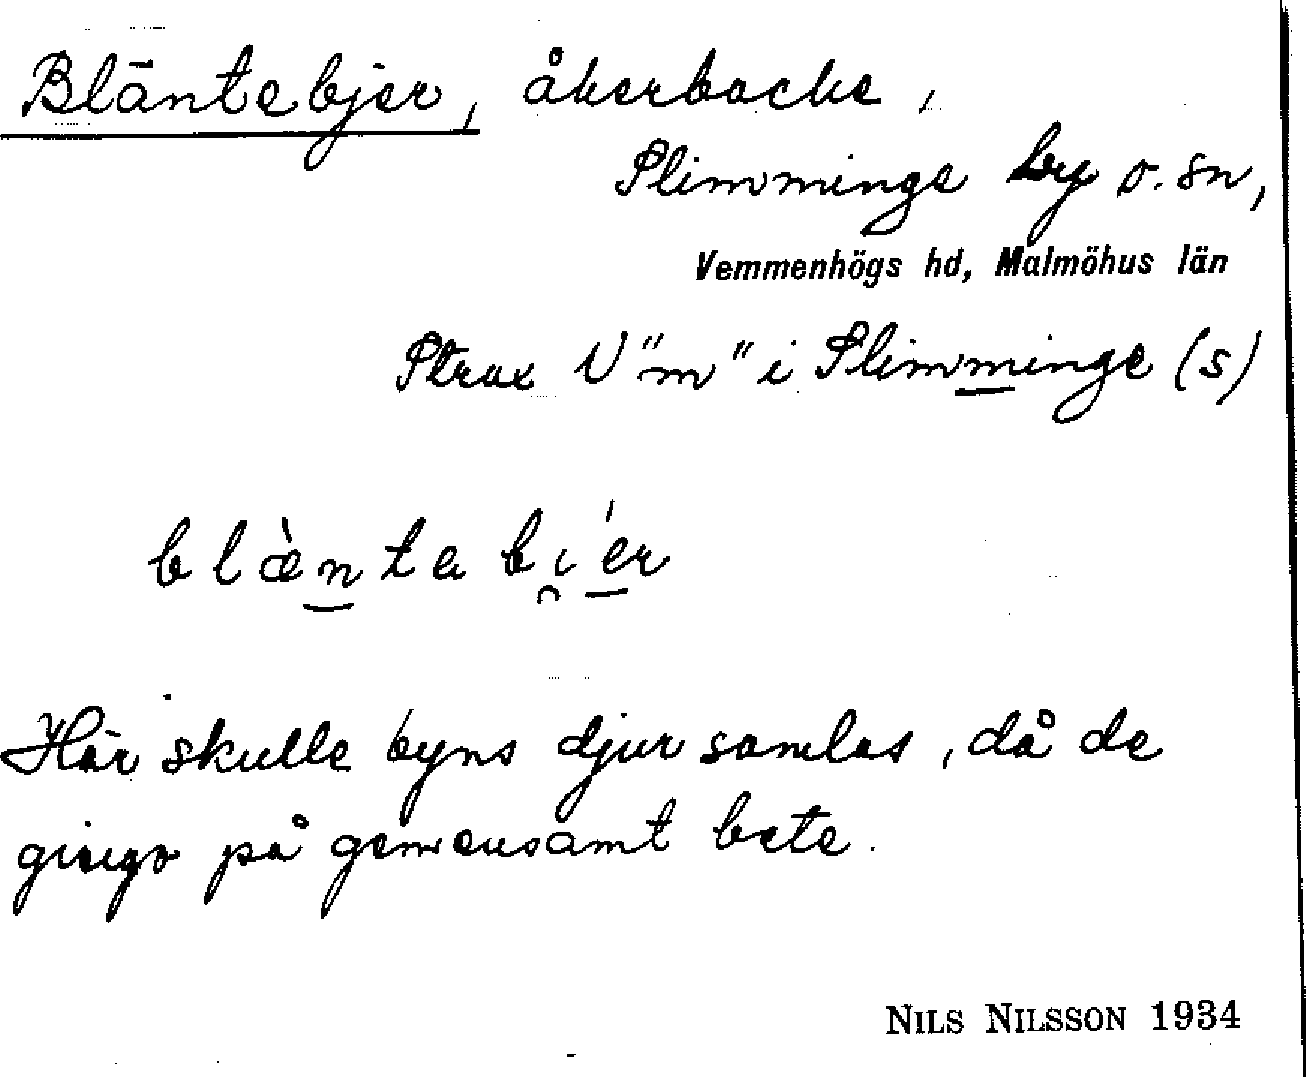 Bläntebjer, åkerbacke,
Slimminge by o. sn,
Vemmenhögs hd, Malmöhus län
Strax V "m" i Slimminge (s)
blæ̀nta bi̯ér
Här skulle byns djur samlas, då de
gingo på gemensamt bete.
NILS NILSSON 1934